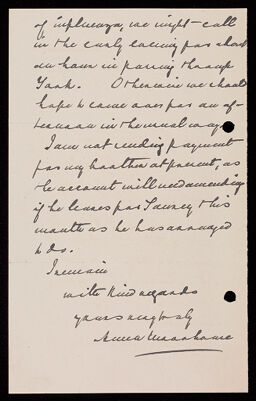 of influenza, we might call
in the early evening for about
an hour in passing through
York. Otherwise we should
hope to come over for an af-
ternoon in the usual way.
I am not sending payment
for my brother at present, as
the account will need amending
if he leaves for Surrey this
month as he has arranged
to do.
I remain
with kind regards
yours very truly